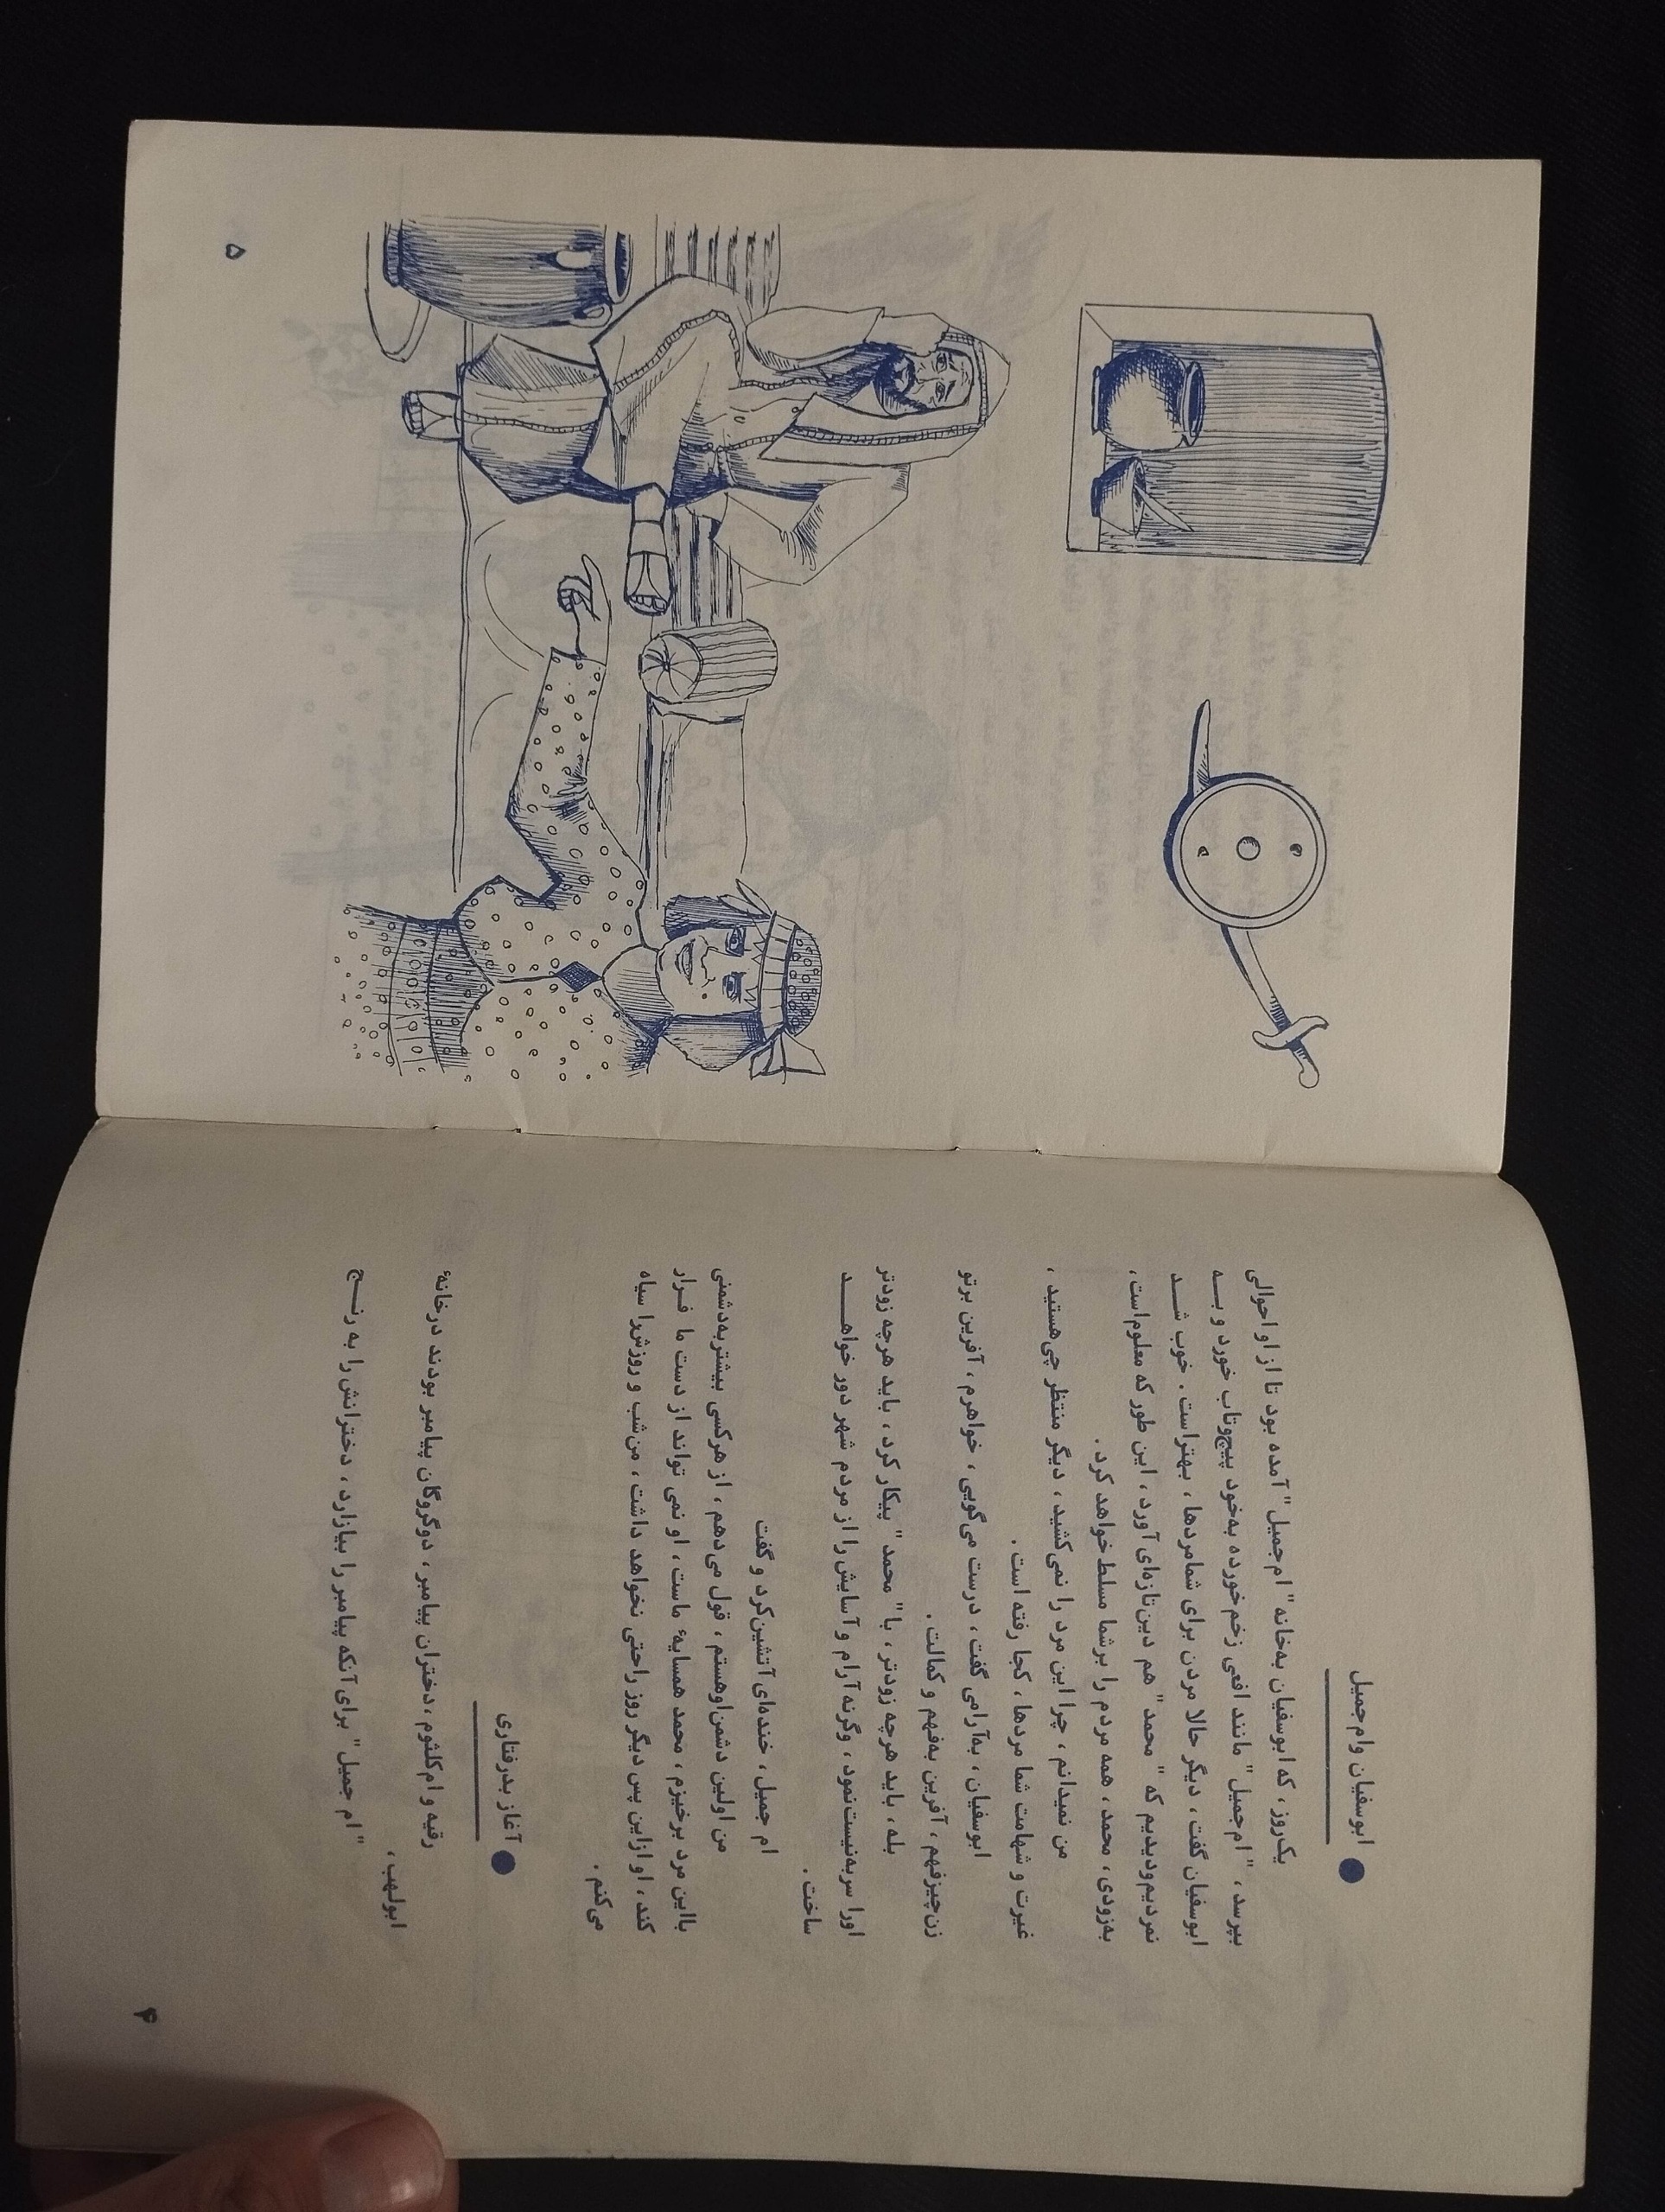 ابوسفیان وام‌جمیل
یک‌روز، که ابوسفیان به‌خانه "ام‌جمیل" آمده بود تا از او احوالی
بپرسد، "ام‌جمیل" مانند افعی زخم‌خورده به‌خود پیچ‌وتاب خورد و بـــه
ابوسفیان گفت، دیگر حالا مردن برای شما‌مردها، بهتر‌است. خوب شـــد
نمردیم‌ودیدیم که "محمد" هم دین‌تازه‌ای آورد، این طور که معلوم‌است،
به‌زودی، محمد، همه مردم را بر‌شما مسلط خواهد کرد.
من نمیدانم، چرا این مرد را نمی‌کشید، دیگر منتظر چی‌هستید،
غیرت و شهامت شما مردها، کجا رفته است.
ابوسفیان، به‌آرامی گفت، درست می‌گویی، خواهرم، آفرین برتو
زن‌چیزفهم، آفرین به‌فهم و کمالت.
بله، باید هرچه زودتر، با "محمد" پیکار کرد، باید هرچه زودتر
اورا سربه‌نیست‌نمود، وگرنه آرام و آسایش‌را از مردم شهر دور خواهـــد
ساخت.
ام جمیل، خنده‌ای آتشین‌کرد و گفت
من اولین دشمن‌اوهستم، قول می‌دهم، از هرکسی بیشتربه‌دشمنی
بااین مرد برخیزم، محمد همسایهٔ ماست، او نمی تواند از دست ما فـرار
کند، او ازاین پس دیگر روز راحتی نخواهد داشت، من‌شب و روزش‌را سیاه
می‌کنم.
آغاز بدرفتاری
رقیه و ام‌کلثوم، دختران پیامبر، دوگروگان پیامبر بودند درخانهٔ
ابولهب،
"ام جمیل" برای آنکه پیامبر را بیازارد، دخترانش‌را به رنـــج
۴
۵